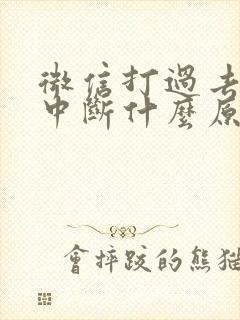 微信打過去
中斷什麼原
會摔跤的熊猫